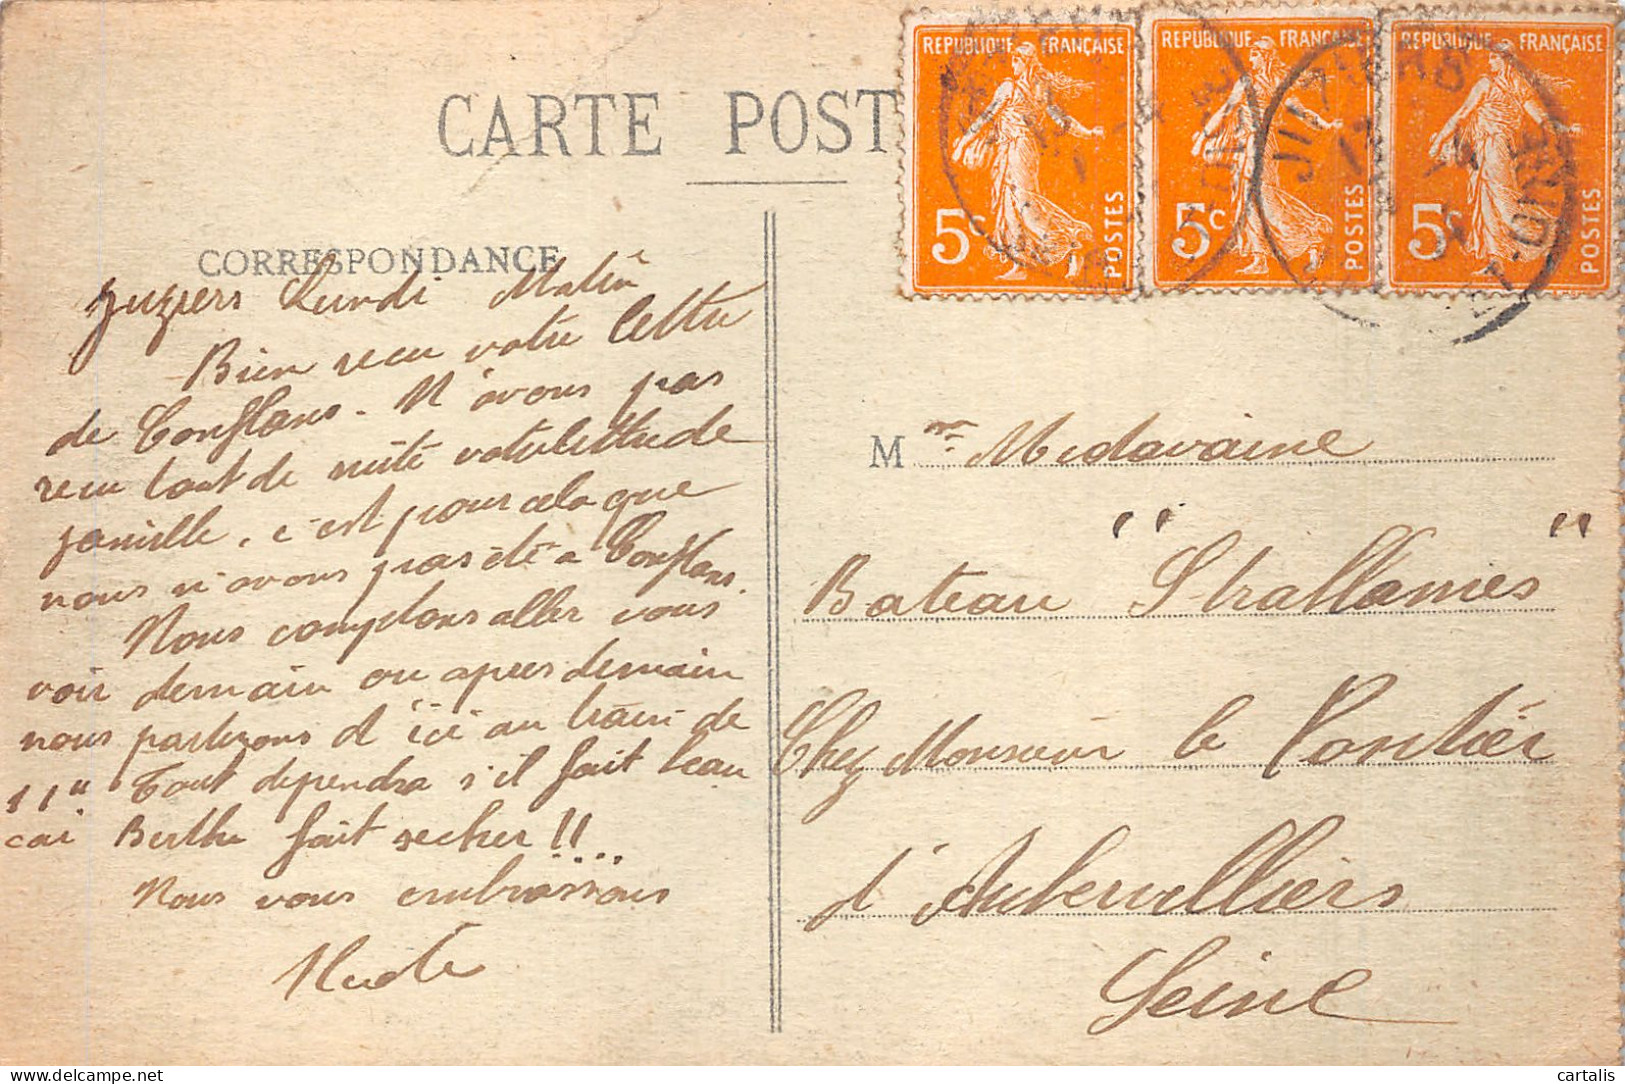 CARTE POST
CORRESPONDANCE
Juziers Lundi Matin
Bien recu votre lettre
de Conflans. N'avons pas
recu tout de suite votre lettre de
famille, c'est pour cela que
nous n'avons pas été a Conflans.
Nous comptons aller vous
voir demain ou apres demain
nous partirons d'ici au train de
11" Tout dependra s'il fait beau
car Berthe fait secher!!....
Nous vous embrassons
REPUBLIQUE FRANÇAISE
5c POSTES
REPUBLIQUE FRANÇAISE
5c POSTES
REPUBLIQUE FRANÇAISE
5c POSTES
JUZIERS
Mme Medavaine
Bateau "Strallamies"
Chez Monsieur le Pontier
d'Aubervilliers
Seine
cartalis